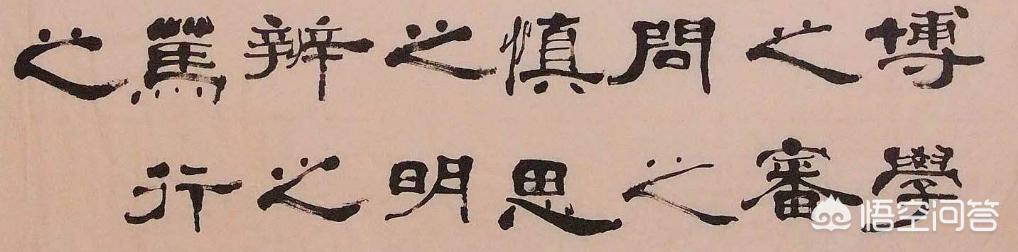 博學
之審
問之
慎思
之明
辨之
篤行
之
悟空问答